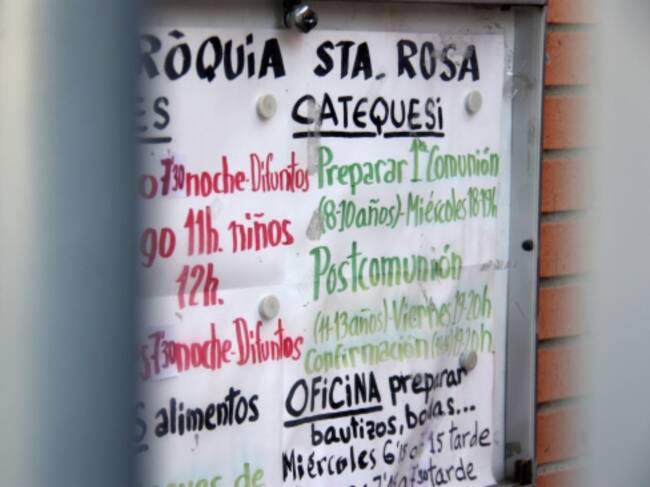 RÒQUIA STA. ROSA
ES
7'30 noche-Difuntos
go 11h. niños
12h.
7'30 noche-Difuntos
alimentos
de
CATEQUESI
Preparar 1ª Comunión
(8-10 años)-Miércoles 18-19h
Postcomunión
(11-13 años)-Viernes 19-20h
Confirmación 19-20h.
OFICINA preparar
bautizos, bodas...
Miércoles 6'15 tarde
tarde